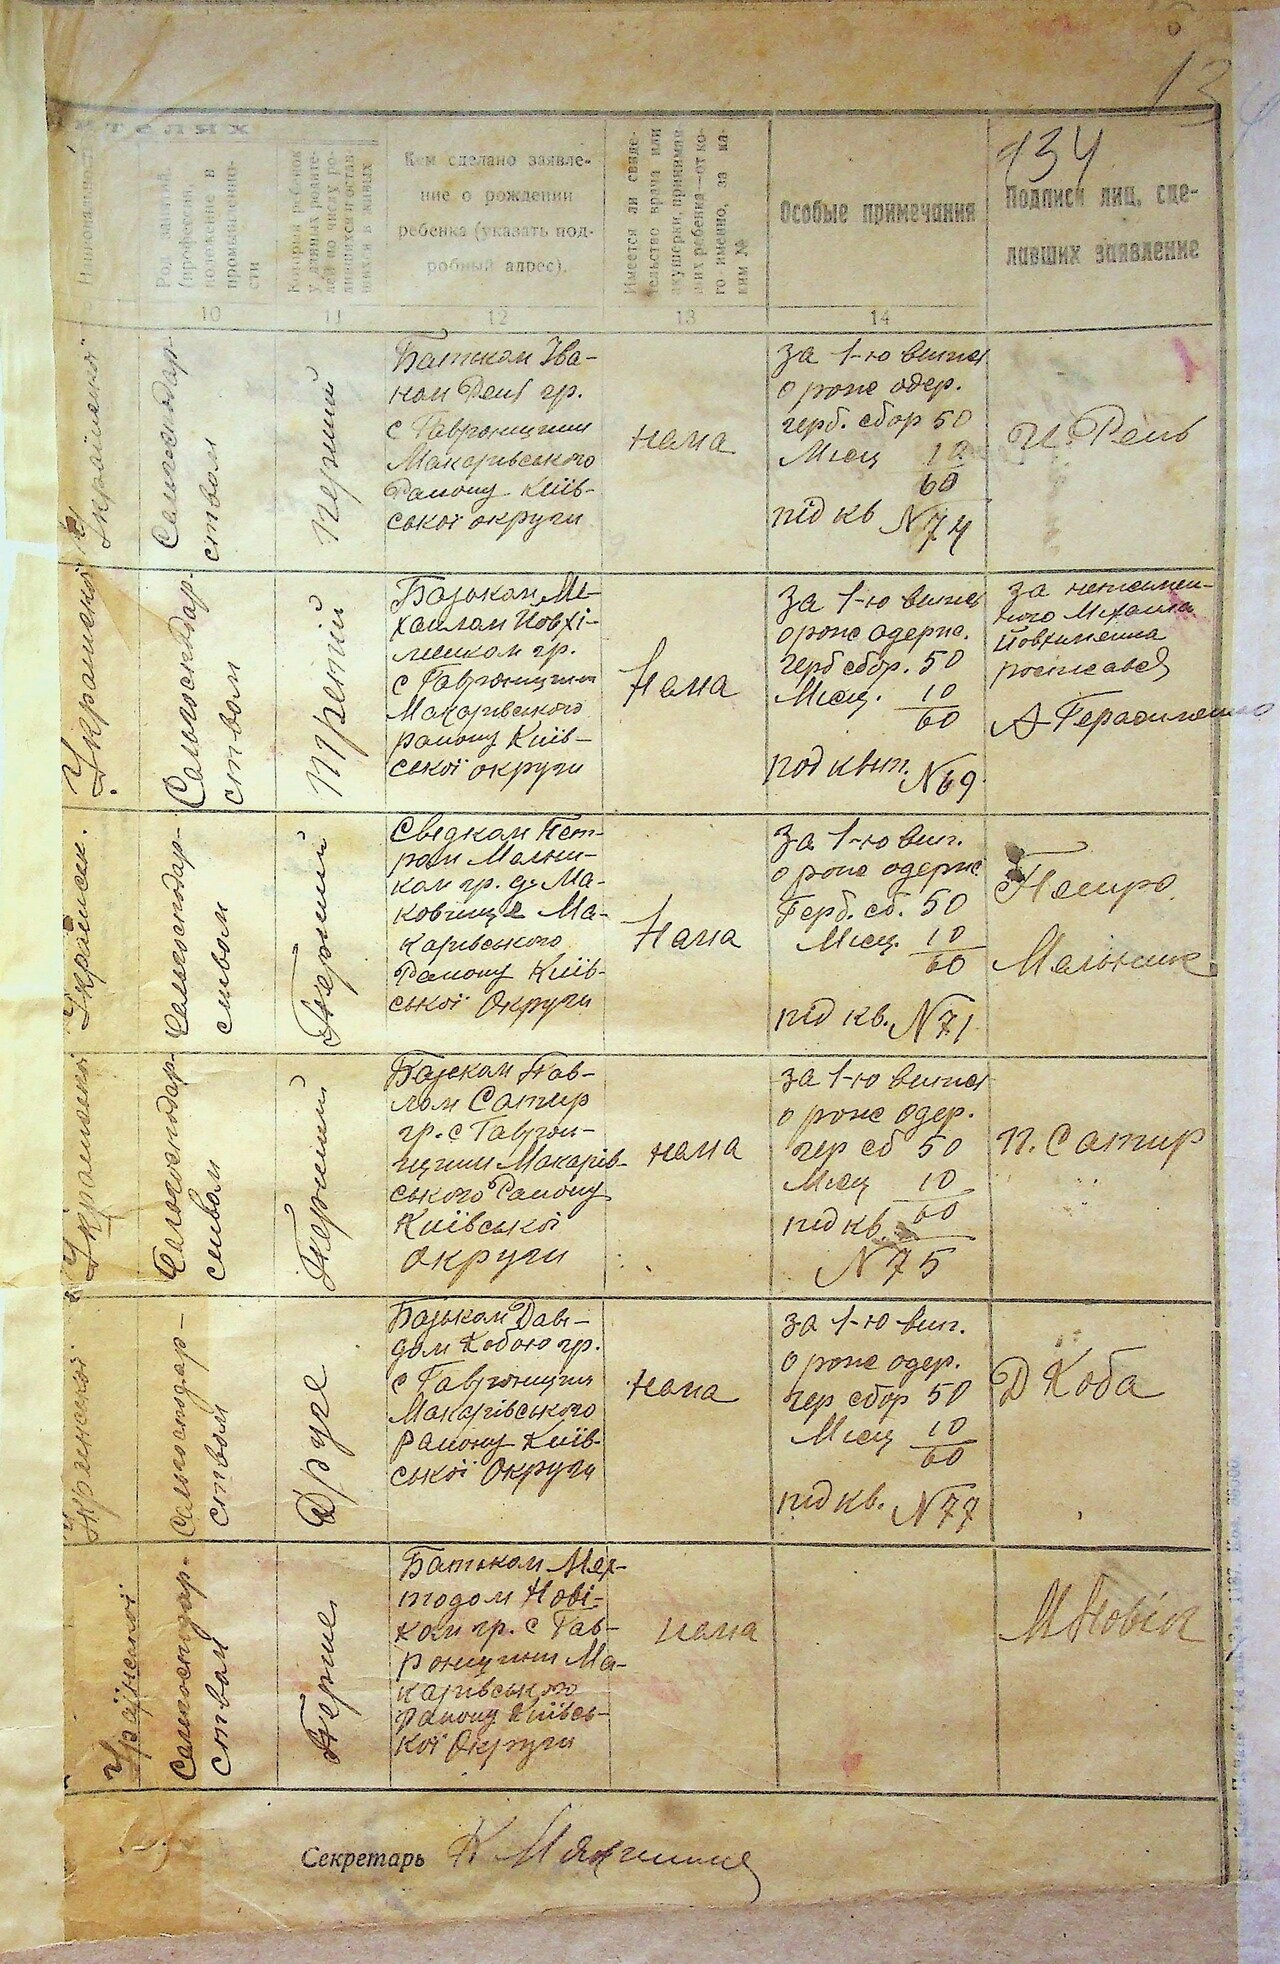 134
ителях
Национальность
Род занятий,
(профессия),
положение в
промышленно-
сти
Который ребенок
у данных родите-
лей по числу ро-
дившихся и остав
шихся в живых
Кем сделано заявле-
ние о рождении
ребенка (указать под-
робный адрес).
Имеется ли свиде-
тельство врача или
акушерки, принимав
ших ребенка—от ко-
го именно, за ка-
ким №
Особые примечания
Подписи лиц, сде-
лавших заявление
10
11
12
13
14
Української
Сільгосподар-
ством
перший
Батьком Іва-
ном Рень гр.
с Гавронщини
Макарівського
Району Київ-
ської округи
нема
за 1-ю випис
о рожд одер.
герб. сбор 50
Місц 10
60
під кв №74
И. Рень
Української
Сільгосподар-
ством
Третій
Батьком Ми-
хайлом Йовхі-
менком гр.
с Гавронщини
Макарівського
району Київ-
ської округи
Нема
За 1-ю випис
о рожд одерж.
герб сбор. 50
Місц. 10
60
под квит. №69
за неписмен-
ного Михаила
Йовхименка
росписавсь
А Герасименко
Українськ.
Сільгосподар-
ством
Перший
Свідком Пет-
ром Мельни-
ком гр. д. Ма-
ковище Ма-
карівського
Району Київ-
ської Округи
Нема
За 1-ю вип.
о рожд одерж
Герб. сб. 50
Місц. 10
60
під кв. №71
Петро
Мельник
Української
Сільгосподар-
ством
Перший
Батьком Пав-
лом Сатир
гр. с Гаврон-
щини Макарів-
ського Району
Київської
округи
нема
за 1-ю випис
о рожд одер.
гер сб 50
Місц 10
60
під кв.
№75
П. Сатир
Української
Сільгосподар-
ством
Друге
Батьком Даві-
дом Кобою гр.
с Гавронщини
Макарівського
Району Київ-
ської Округи
Нема
за 1-ю вип.
о рожд одер.
гер сбор 50
Місц 10
60
під кв. №77
Д Коба
Української
Сільгосподар-
ством
Перше
Батьком Меф-
тодом Нові-
ком гр. с Гав-
ронщини Ма-
карівського
Району Київсь-
кої Округи
нема
М Новік
Секретарь